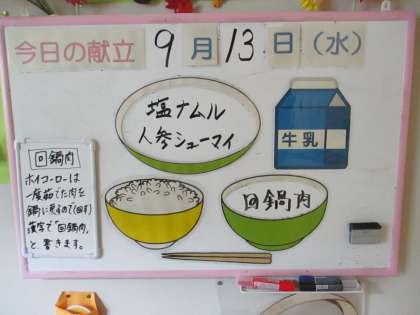 今日の献立 9月13日（水）
塩ナムル
人参シューマイ
牛乳
回鍋肉
回鍋肉
ホイコーローは
一度茹でた肉を
鍋に戻すので(回す)
漢字で「回鍋肉」
と書きます。